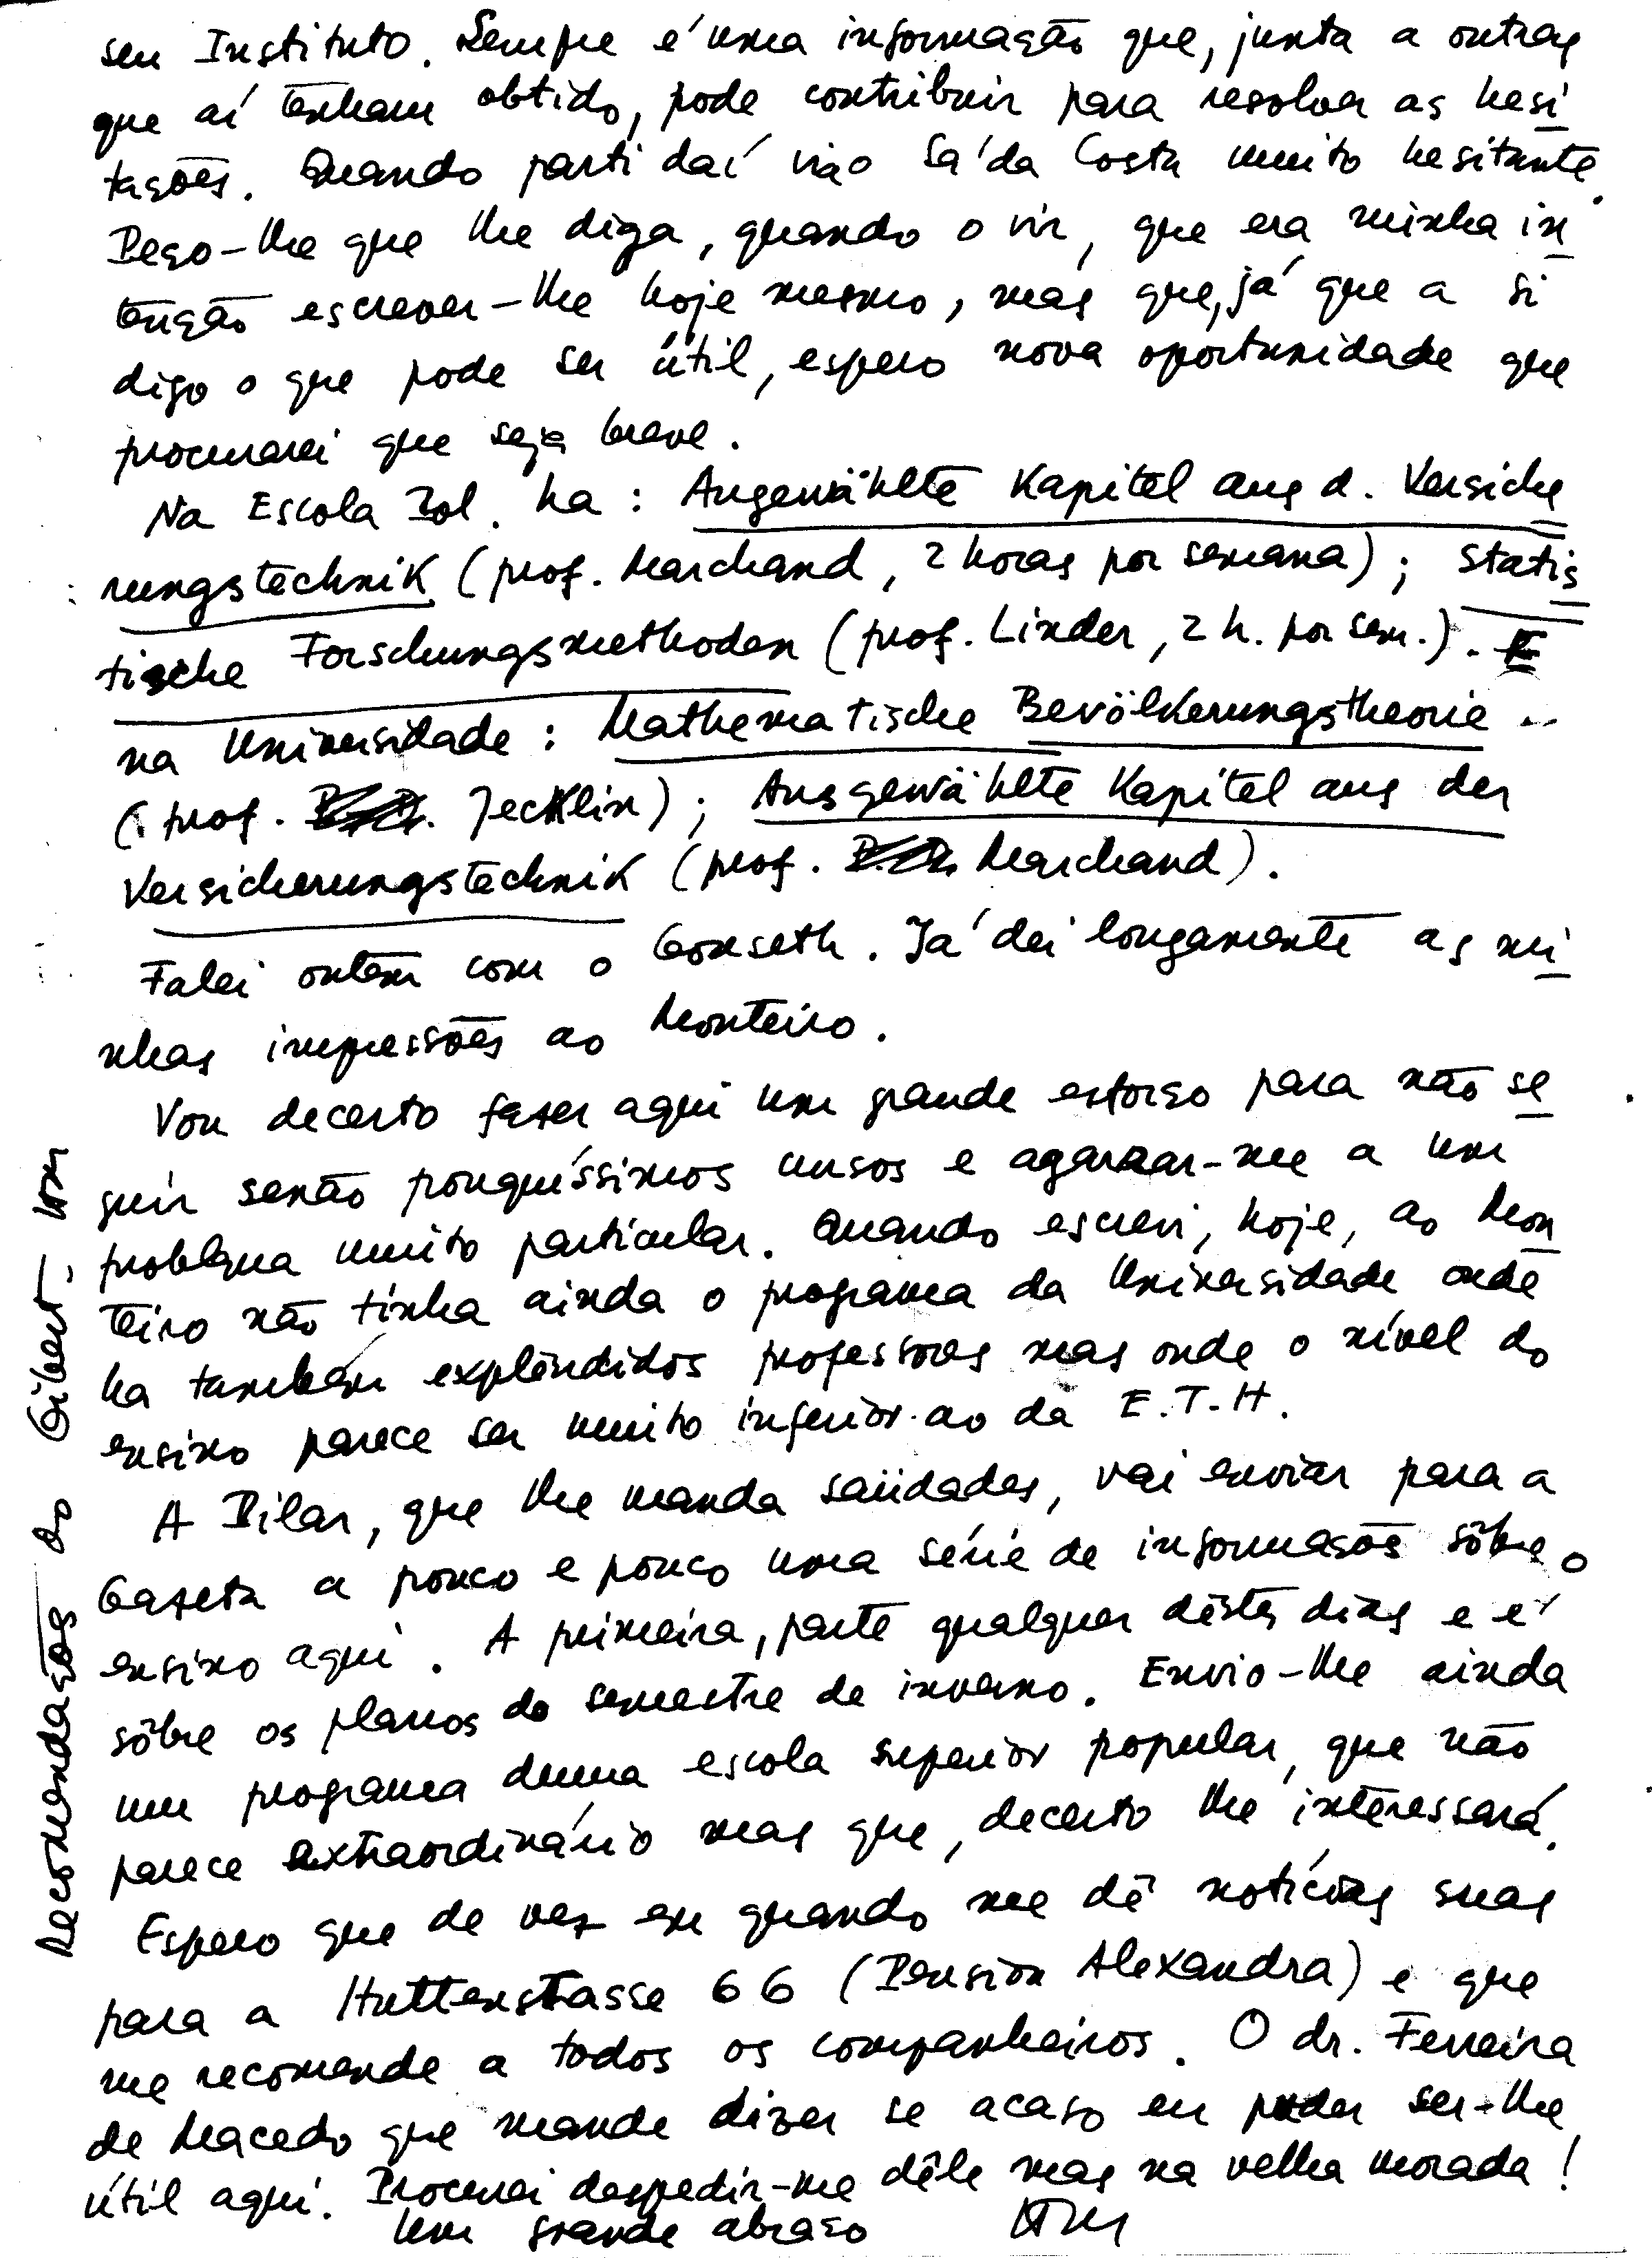 seu Instituto. Sempre é uma informação que, junta a outras
que aí tenham obtido, pode contribuir para resolver as hesi
tações. Quando parti daí vi o Sá da Costa muito hesitante.
Peço-lhe que lhe diga, quando o vir, que era minha in
tenção escrever-lhe hoje mesmo, mas que, já que a si
digo o que pode ser útil, espero nova oportunidade que
procurarei que seja breve.
Na Escola Pol. ha: Ausgewählte Kapitel aus d. Versiche
rungstechnik (prof. Marchand, 2 horas por semana); Statis
tische Forschungsmethoden (prof. Linder, 2 h. por sem.). E
na Universidade: Mathematische Bevölkerungstheorie
(prof. Jecklin); Ausgewählte Kapitel aus der
Versicherungstechnik (prof. Marchand).
Falei ontem com o Gonseth. Já dei longamente as mi
nhas impressões ao Monteiro.
Vou decerto fazer aqui um grande esforço para não se
guir senão pouquíssimos cursos e agarrar-me a um
problema muito particular. Quando escrevi, hoje, ao Mon
teiro não tinha ainda o programa da Universidade onde
ha também explêndidos professores mas onde o nível do
ensino parece ser muito inferior ao da E.T.H.
A Pilar, que lhe manda saüdades, vai enviar para a
Gazeta a pouco e pouco uma série de informações sôbre o
ensino aqui. A primeira, parte qualquer dêstes dias e é
sôbre os planos do semestre de inverno. Envio-lhe ainda
um programa duma escola superior popular, que não
parece extraordinário mas que, decerto lhe interessará.
Espero que de vez em quando me dê notícias suas
para a Huttenstrasse 66 (Pension Alexandra) e que
me recomende a todos os companheiros. O dr. Ferreira
de Macedo que mande dizer se acaso eu puder ser-lhe
útil aqui. Procurei despedir-me dêle mas na velha morada!
Um grande abraço
Recomendações do Gibert